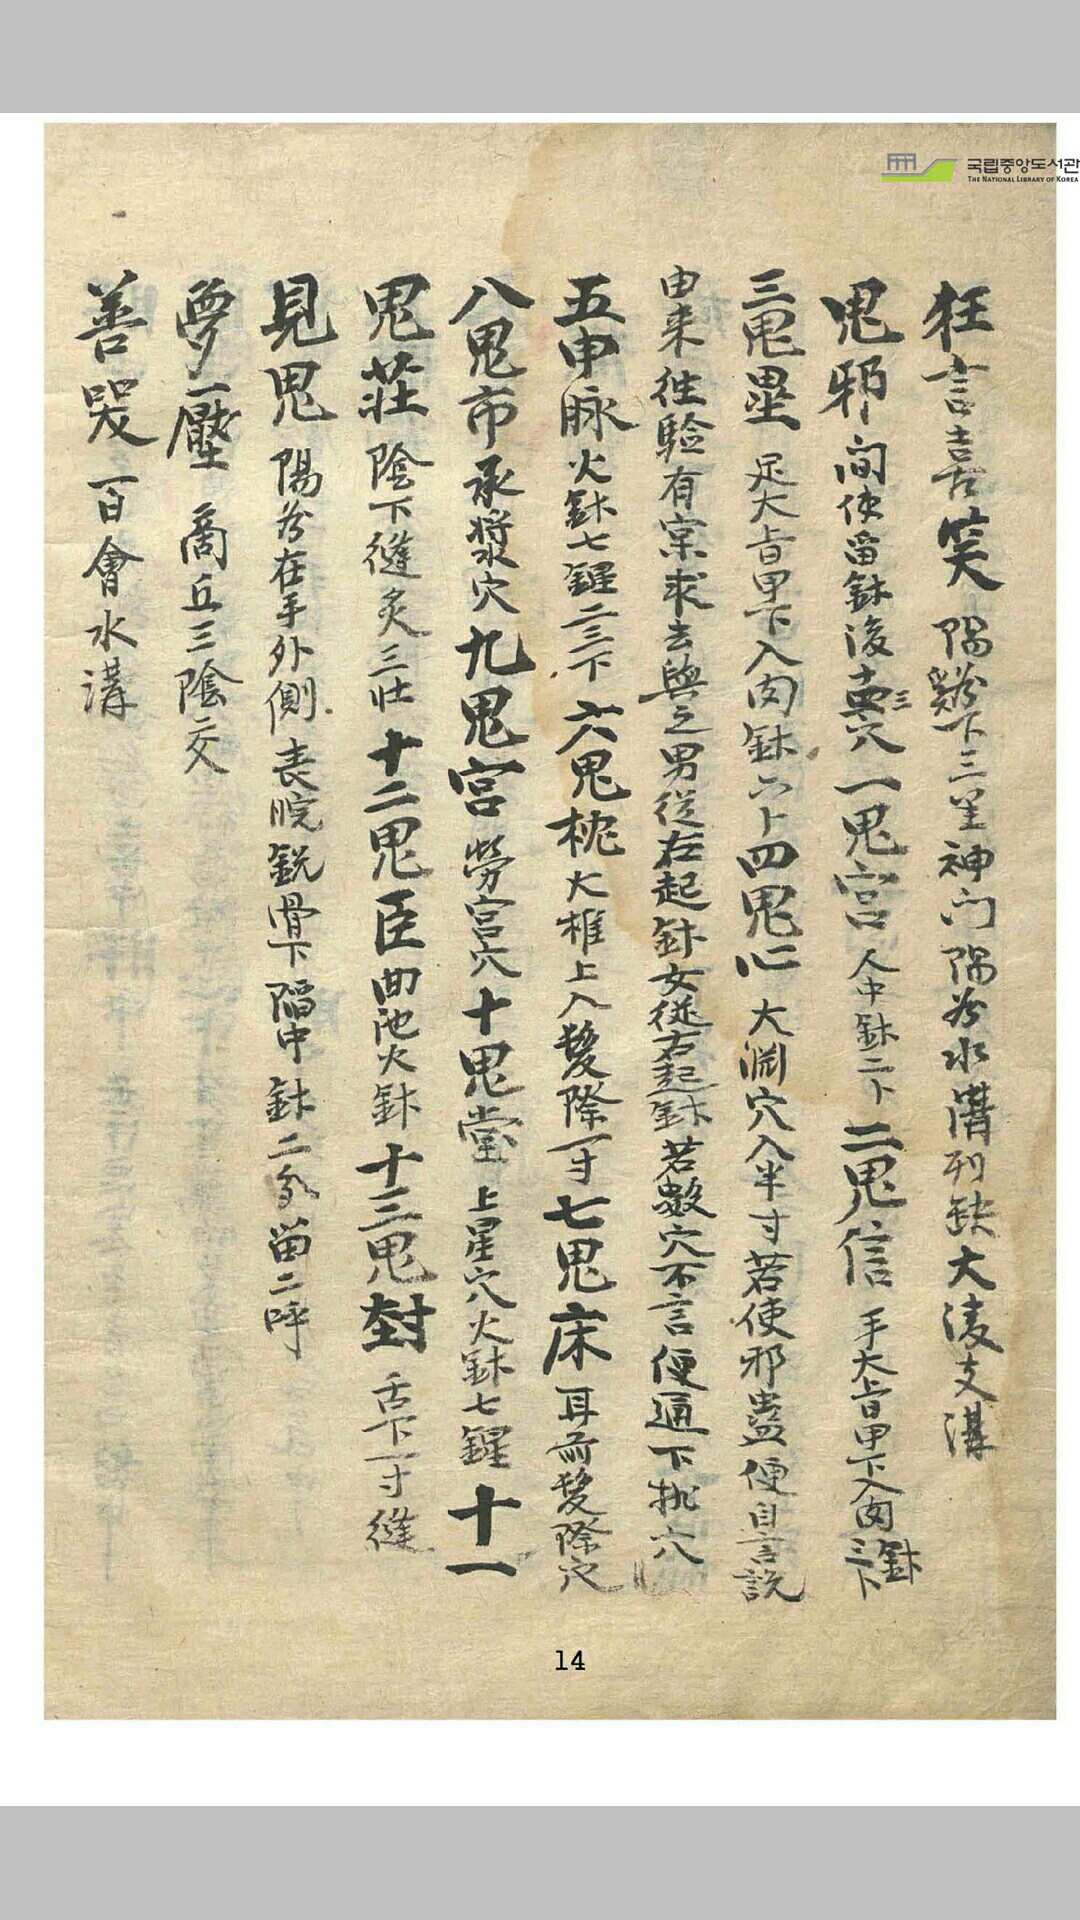 국립중앙도서관
THE NATIONAL LIBRARY OF KOREA
狂言喜笑 陽谿下三里神門陽谷水溝列缺大淩支溝
鬼邪 間使畱針後十三穴 一鬼宮 人中針二卜 二鬼信 手大旨甲下入肉針三卜
三鬼壘 足大旨甲下入肉針六卜 四鬼心 大淵穴入半寸若使邪蠱便自言說
由来徃驗有宲求去與之男從左起針女從右起針若數穴不言便通下挑穴
五申脉 火針七鍟二三下 六鬼枕 大椎上入髮際一寸 七鬼床 耳前髮際穴
八鬼市 承漿穴 九鬼宮 勞宮穴 十鬼堂 上星穴火針七鍟 十一
鬼莊 陰下縫灸三壯 十二鬼臣 曲池火針 十三鬼封 舌下一寸縫
見鬼 陽谷在手外側表腕銳骨下陷中針二分畱二呼
夢壓 商丘三陰交
善哭 百會水溝
14